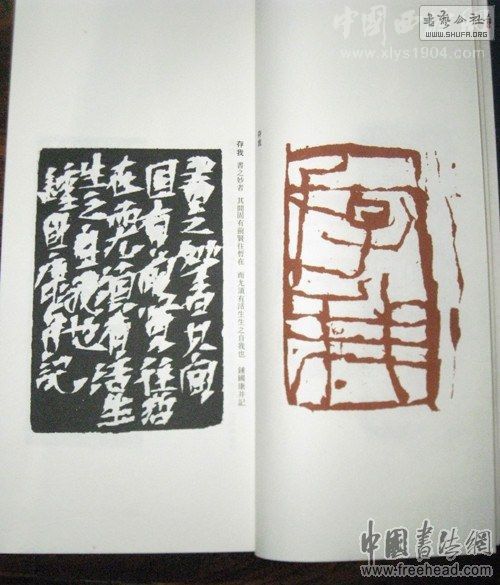 中國西泠
www.xlys1904.com
書藝公社
WWW.SHUFA.ORG
存我
存我
存我 書之妙者 其間固有前賢往哲在 而尤須有活生生之自我也 鍾國康并記
書之妙者其間
固有前賢往哲
在而尤須有活生
生之自我也
鍾國康并記
中國書法網
www.freehead.com